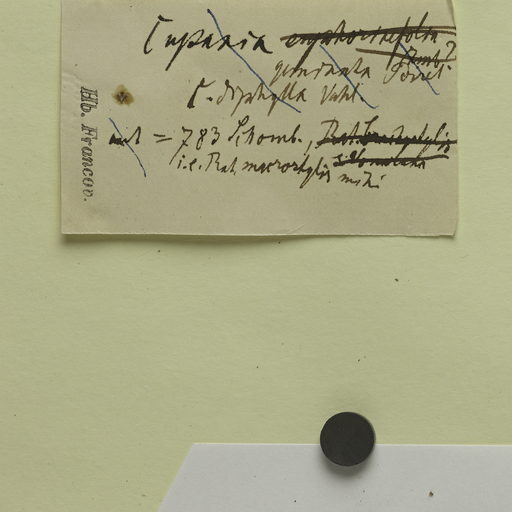 Cupania
geminata Poiret.
C. diphylla Vahl
= 783 Schomb.,
i. e. Rat. macrostylis mihi
Hb. Francov.